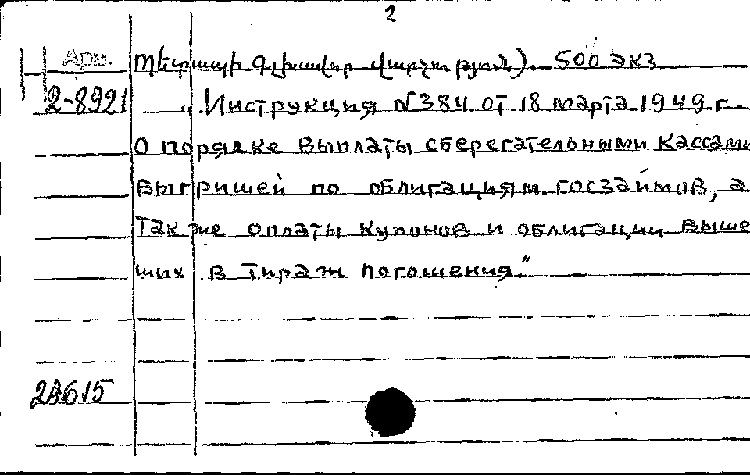 2
Арм. Պետապի Գլխավոր վարչություն). 500 экз
2-8921 „Инструкция N384 от 18 марта 1949 г.
О порядке выплаты сберегательными кассами
выгришей по облигациям госзаймов, а
также оплаты купонов и облигации выше
ших в тираж погошения."
23615